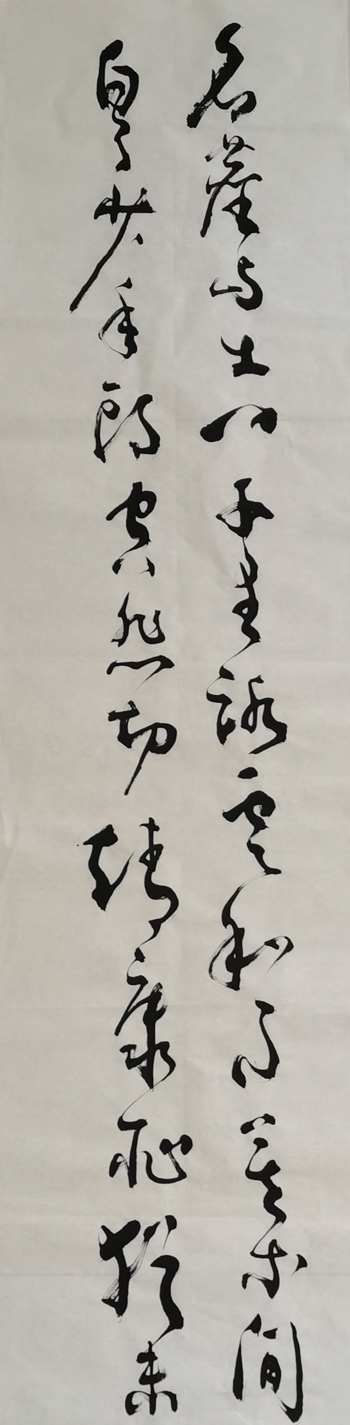 名尘与土八千里路云和月莫等闲
白了少年头空悲切靖康耻犹未